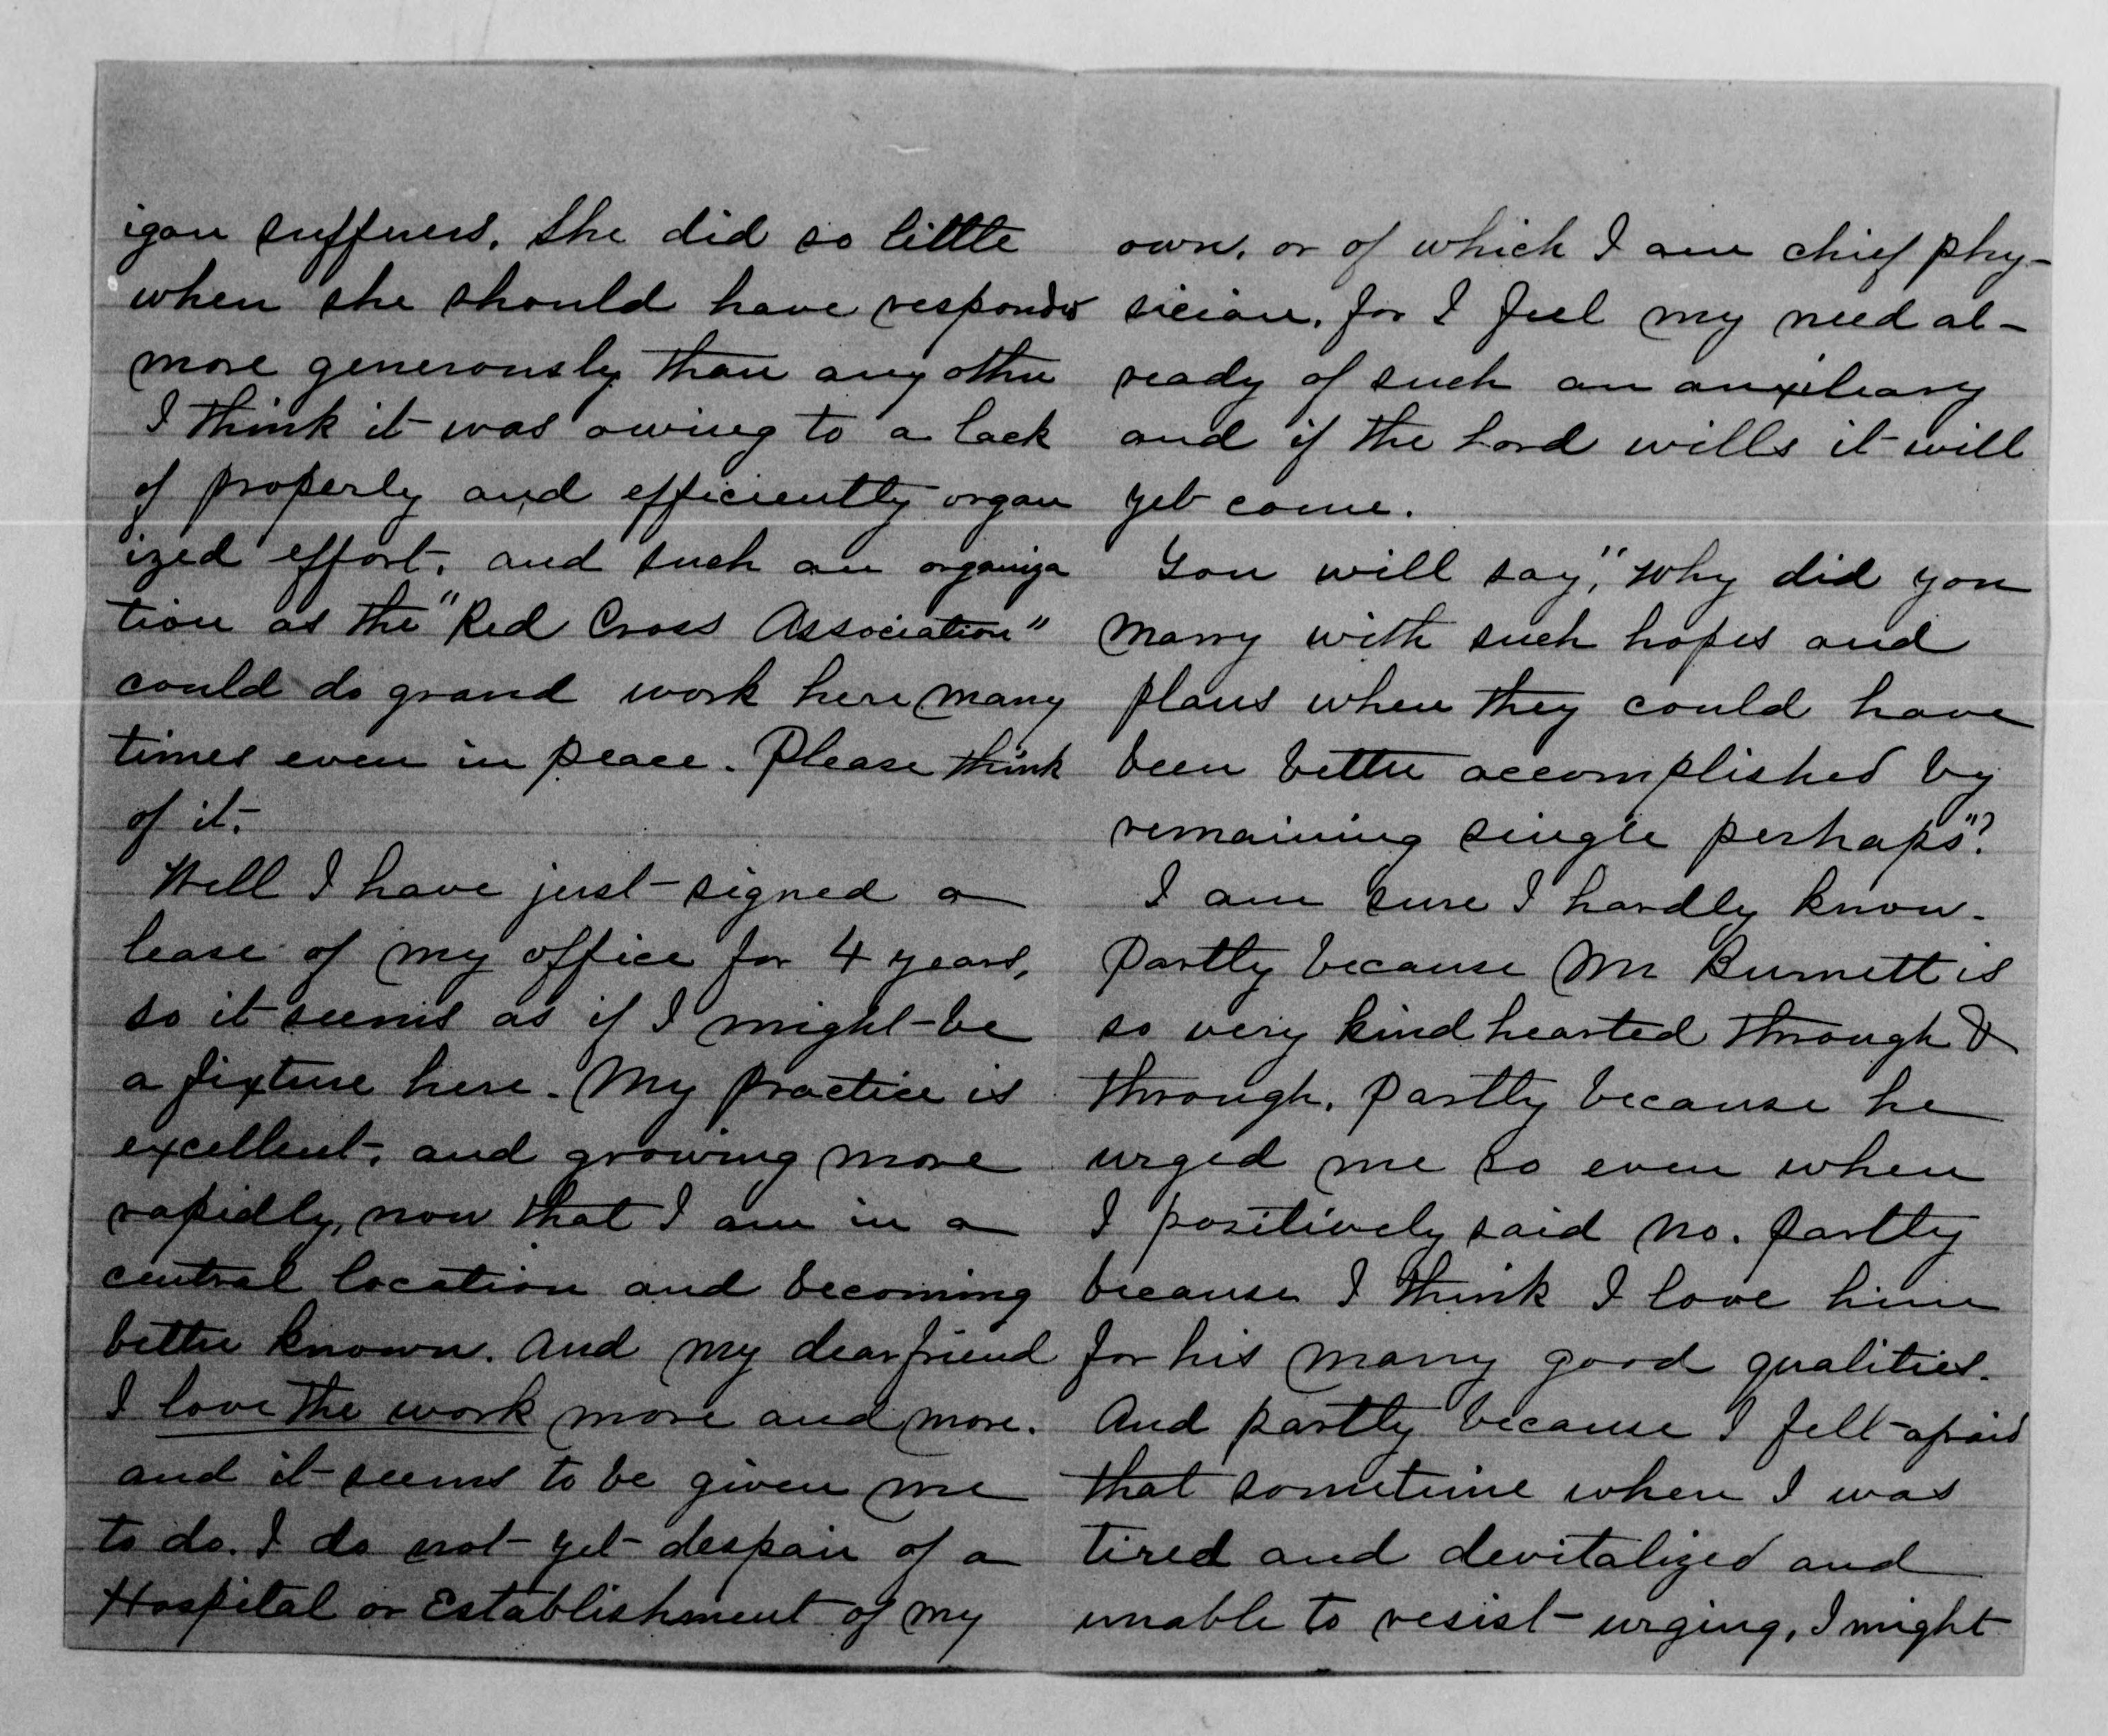 igan sufferers. She did so little
when she should have responded
more generously than any other
I think it was owing to a lack
of properly and efficiently organ
ized effort, and such an organiza
tion as the "Red Cross Association"
could do grand work here many
times even in peace. Please think
of it.
Well I have just signed a
lease of my office for 4 years,
so it seems as if I might be
a fixture here. My practice is
excellent, and growing more
rapidly, now that I am in a
central location and becoming
better known. And my dear friend
I love the work more and more.
and it seems to be given me
to do. I do not yet despair of a
Hospital or Establishment of my
own, or of which I am chief phy-
sician, for I feel my need al-
ready of such an auxileary
and if the Lord wills it will
yet come.
You will say, "Why did you
marry with such hopes and
plans when they could have
been better accomplished by
remaining single perhaps"?
I am sure I hardly know.
Partly because Mr Burnett is
so very kind hearted through &
through, partly because he
urged me so even when
I positively said no. partly
because I think I love him
for his many good qualities.
And partly because I felt afraid
that sometime when I was
tired and devitalized and
unable to resist urging, I might